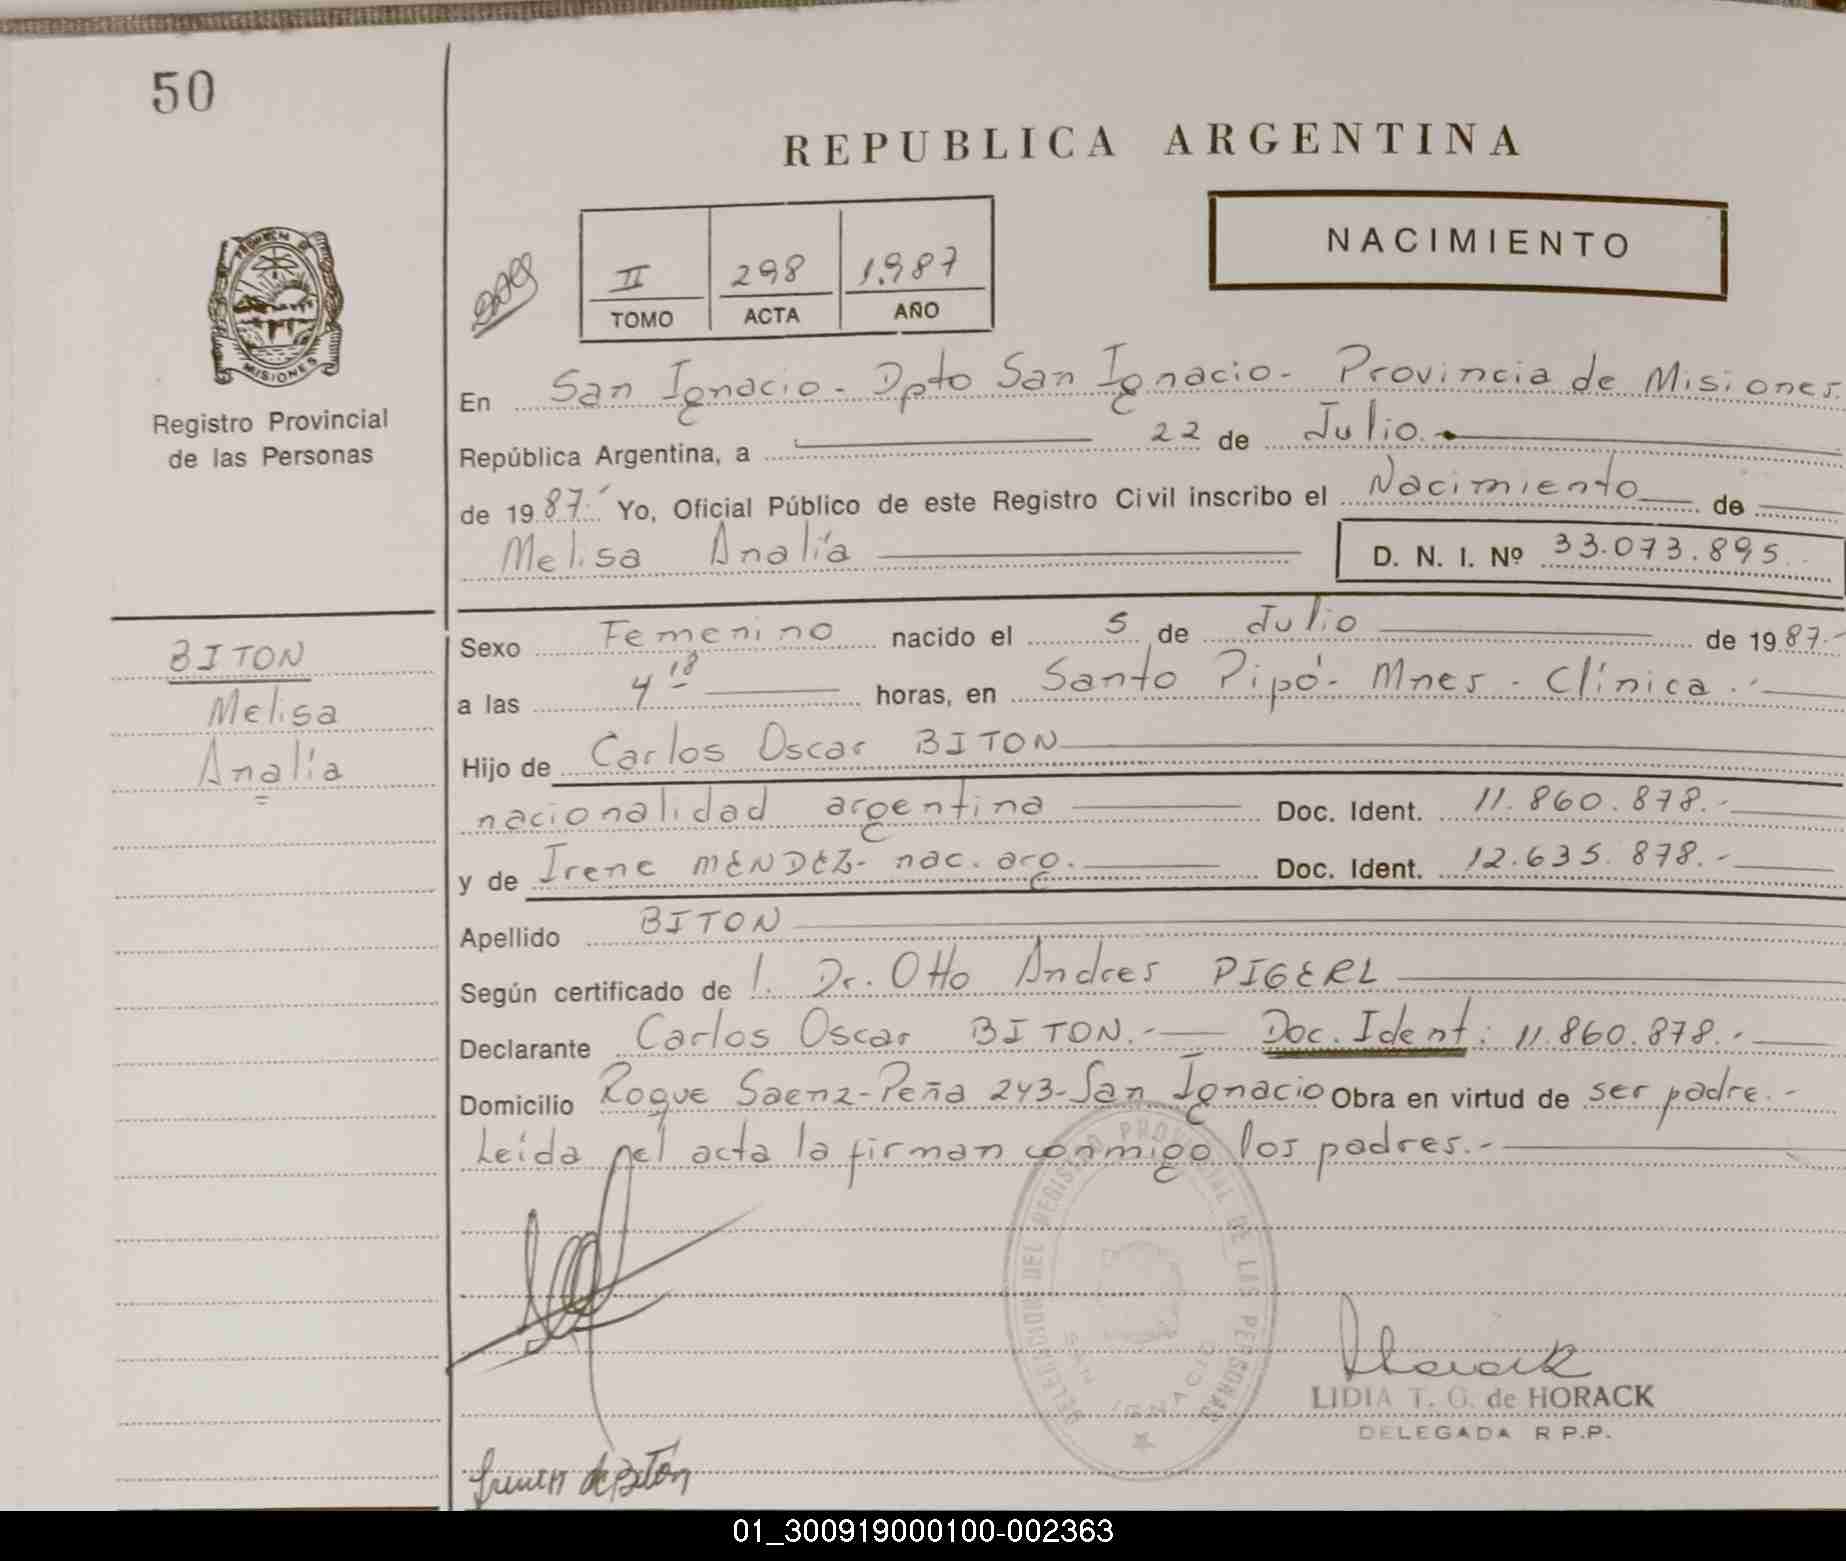 50
REPUBLICA ARGENTINA
NACIMIENTO
II 298 1.987
TOMO ACTA AÑO
PROVINCIA DE
MISIONES
Registro Provincial
de las Personas
En San Ignacio - Dpto San Ignacio - Provincia de Misiones.
República Argentina, a 22 de Julio.
de 1987.- Yo, Oficial Público de este Registro Civil inscribo el Nacimiento de
Melisa Analía D. N. I. Nº 33.073.895.-
BITON
Melisa
Analía
Sexo Femenino nacido el 5 de Julio de 1987.-
a las 4 18 horas, en Santo Pipó - Mnes - Clínica.-
Hijo de Carlos Oscar BITON
nacionalidad argentina Doc. Ident. 11.860.878.-
y de Irene MENDEZ - nac. arg. Doc. Ident. 12.635.878.-
Apellido BITON
Según certificado de l. Dr. Otto Andres PIGERL
Declarante Carlos Oscar BITON.- Doc. Ident: 11.860.878.-
Domicilio Roque Saenz-Peña 243 - San Ignacio Obra en virtud de ser padre.-
Leída el acta la firman conmigo los padres.-
DELEGACION DEL REGISTRO PROVINCIAL DE LAS PERSONAS
SAN IGNACIO
Horack
LIDIA T. G. de HORACK
DELEGADA R.P.P.
de Biton
01_300919000100-002363